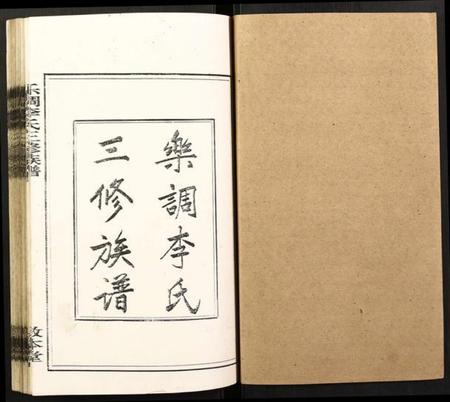 樂調李氏
三修族谱
乐调李氏三修族谱
敦本堂